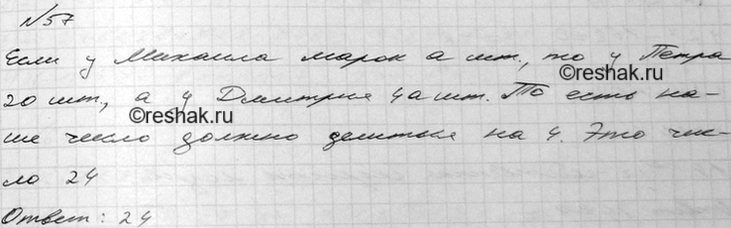 №57
Если у Михаила марок а шт., то у Петра
©reshak.ru
20 шт, а у Дмитрия 4а шт. То есть на-
©reshak.ru
ше число должно делиться на 4. Это чис-
ло 24
Ответ: 24